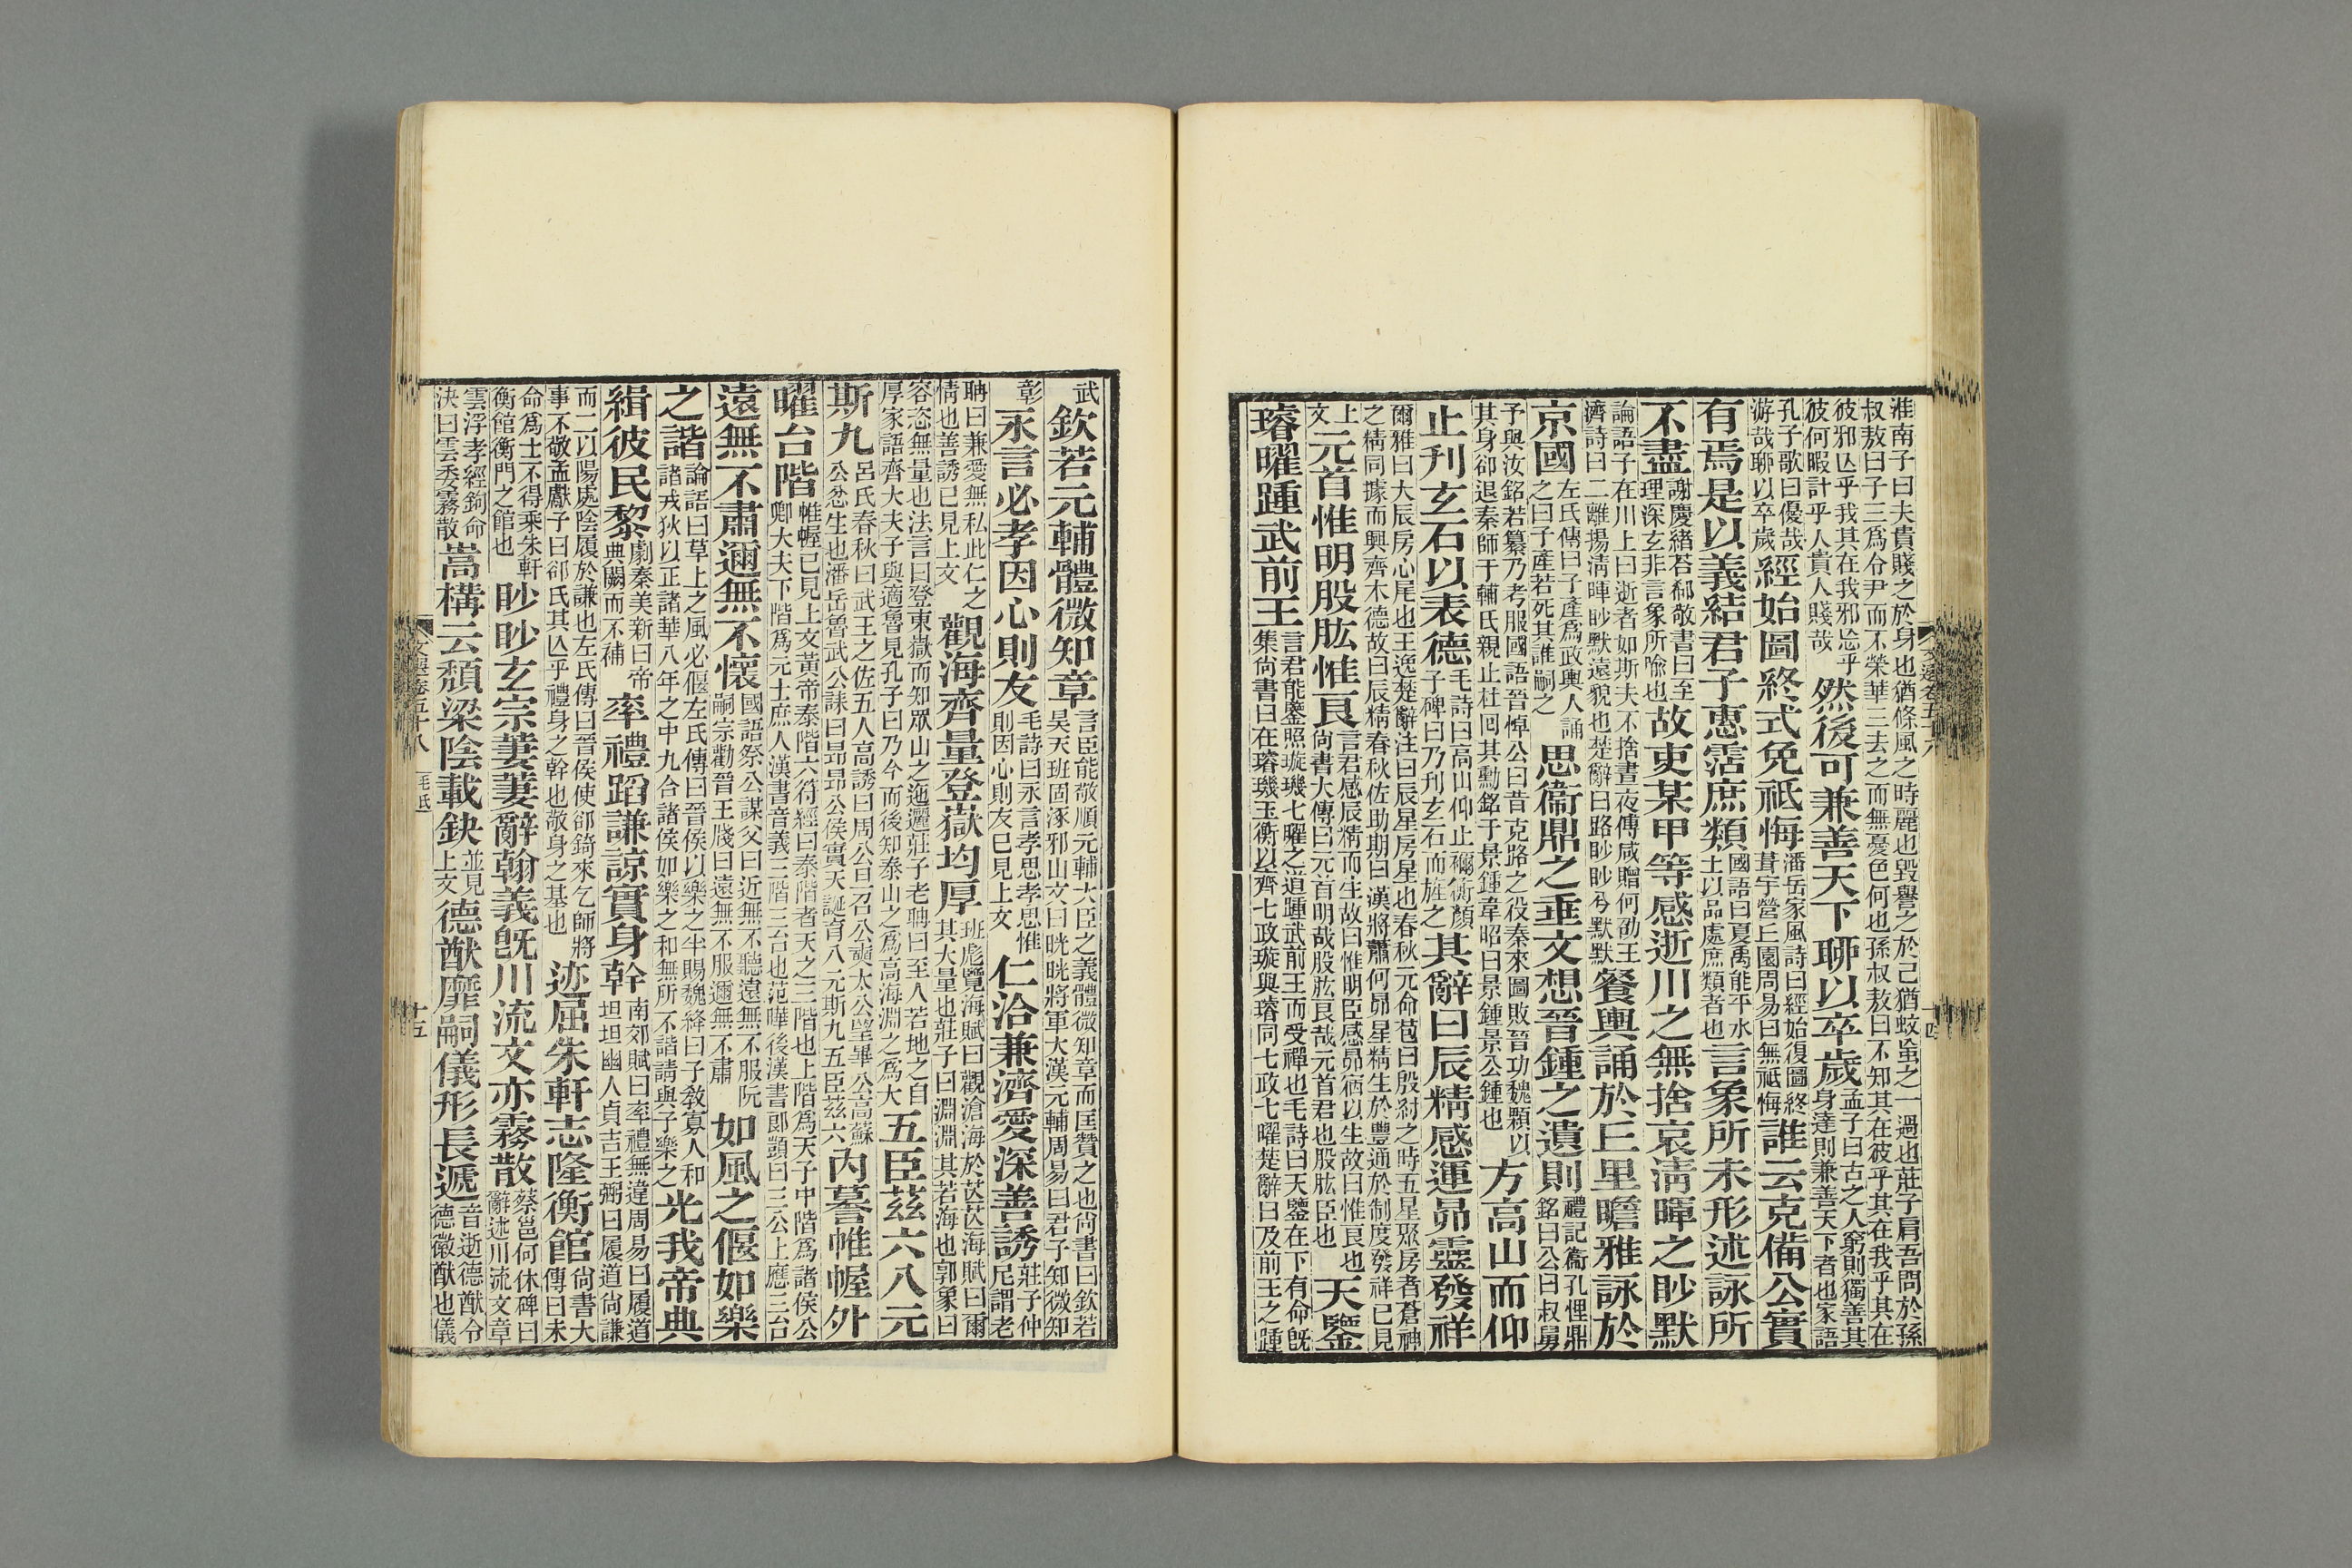 淮南子曰夫貴賤之於身也猶條風之時麗也毀譽之於己猶蚊䖟之一過也莊子肩吾問於孫
叔敖曰子三爲令尹而不榮華三去之而無憂色何也孫叔敖曰不知其在彼乎其在我乎其在
彼邪亾乎我其在我邪忘乎彼何暇計乎人貴人賤哉然後可兼善天下聊以卒歲孟子曰古之人窮則獨善其身達則兼善天下者也家語
孔子歌曰優哉游哉聊以卒歲經始圖終式免祗悔潘岳家風詩曰經始復圖終葺宇營丘園周易曰無祗悔誰云克備公實
有焉是以義結君子惠霑庶類國語曰夏禹能平水土以品處庶類者也言象所未形述詠所
不盡謝慶緒荅郗敬書曰至理深玄非言象所喻也故吏某甲等感逝川之無捨哀清暉之眇默
論語子在川上曰逝者如斯夫不捨晝夜傅咸贈何劭王濟詩曰二離揚清暉眇默遠貌也楚辭曰路眇眇兮默默餐輿誦於丘里瞻雅詠於
京國左氏傳曰子產爲政輿人誦之曰子產若死其誰嗣之思衞鼎之垂文想晉鍾之遺則禮記衞孔悝鼎銘曰公曰叔舅
予與汝銘若纂乃考服國語晉悼公曰昔克路之役秦來圖敗晉功魏顆以其身卻退秦師于輔氏親止杜回其勳銘于景鍾韋昭曰景鍾景公鍾也方高山而仰
止刋玄石以表德毛詩曰高山仰止禰衡顏子碑曰乃刋玄石而旌之其辭曰辰精感運昴靈發祥
爾雅曰大辰房心尾也王逸楚辭注曰辰星房星也春秋元命苞曰殷紂之時五星聚房者蒼神
之精同據而興齊木德故曰辰精春秋佐助期曰漢將蕭何昴星精生於豐通於制度發祥已見
上文元首惟明股肱惟良言君感辰精而生故曰惟明臣感昴宿以生故曰惟良也尚書大傳曰元首明哉股肱良哉元首君也股肱臣也天鑒
璿曜踵武前王言君能鑒照璇璣七曜之道踵武前王而受禪也毛詩曰天鑒在下有命旣集尚書曰在璿璣玉衡以齊七政璇與璿同七政七曜楚辭曰及前王之踵
武欽若元輔體微知章言臣能敬順元輔大臣之義體微知章而匡贊之也尚書曰欽若昊天班固涿邪山文曰晄晄將軍大漢元輔周易曰君子知微知
彰永言必孝因心則友毛詩曰永言孝思孝思惟則因心則友已見上文仁洽兼濟愛深善誘莊子仲尼謂老
聃曰兼愛無私此仁之情也善誘已見上文觀海齊量登嶽均厚班彪覽海賦曰觀滄海於茫茫海賦曰爾其大量也莊子曰淵淵其若海也郭象曰
容恣無量也法言曰登東嶽而知眾山之迤邐莊子老聃曰至人若地之自厚家語齊大夫子與適魯見孔子曰乃今而後知泰山之爲高海淵之爲大五臣茲六八元
斯九呂氏春秋曰武王之佐五人高誘曰周公旦召公奭太公望畢公高蘇公忿生也潘岳魯武公誄曰昂昂公侯實天誕育八元斯九五臣茲六內謩帷幄外
曜台階帷幄已見上文黃帝泰階六符經曰泰階者天之三階也上階爲天子中階爲諸侯公卿大夫下階爲元士庶人漢書音義三階三台也范曄後漢書郎顗曰三公上應三台
遠無不肅邇無不懷國語祭公謀父曰近無不聽遠無不服阮嗣宗勸晉王牋曰遠無不服邇無不肅如風之偃如樂
之諧論語曰草上之風必偃左氏傳曰晉侯以樂之半賜魏絳曰子敎寡人和諸戎狄以正諸華八年之中九合諸侯如樂之和無所不諧請與子樂之光我帝典
緝彼民黎劇秦美新曰帝典闕而不補率禮蹈謙諒實身幹南郊賦曰率禮無違周易曰履道坦坦幽人貞吉王弼曰履道尚謙
而二以陽處陰履於謙也左氏傳曰晉侯使郤錡來乞師將事不敬孟獻子曰郤氏其亾乎禮身之幹也敬身之基也迹屈朱軒志隆衡館尚書大傳曰未
命爲士不得乘朱軒衡館衡門之館也眇眇玄宗萋萋辭翰義旣川流文亦霧散蔡邕何休碑曰辭述川流文章
雲浮孝經鉤命決曰雲委霧散嵩構云頹梁陰載缺並見上文德猷靡嗣儀形長遞音逝德猷令德徽猷也儀
文選卷五十八
毛氏
十五